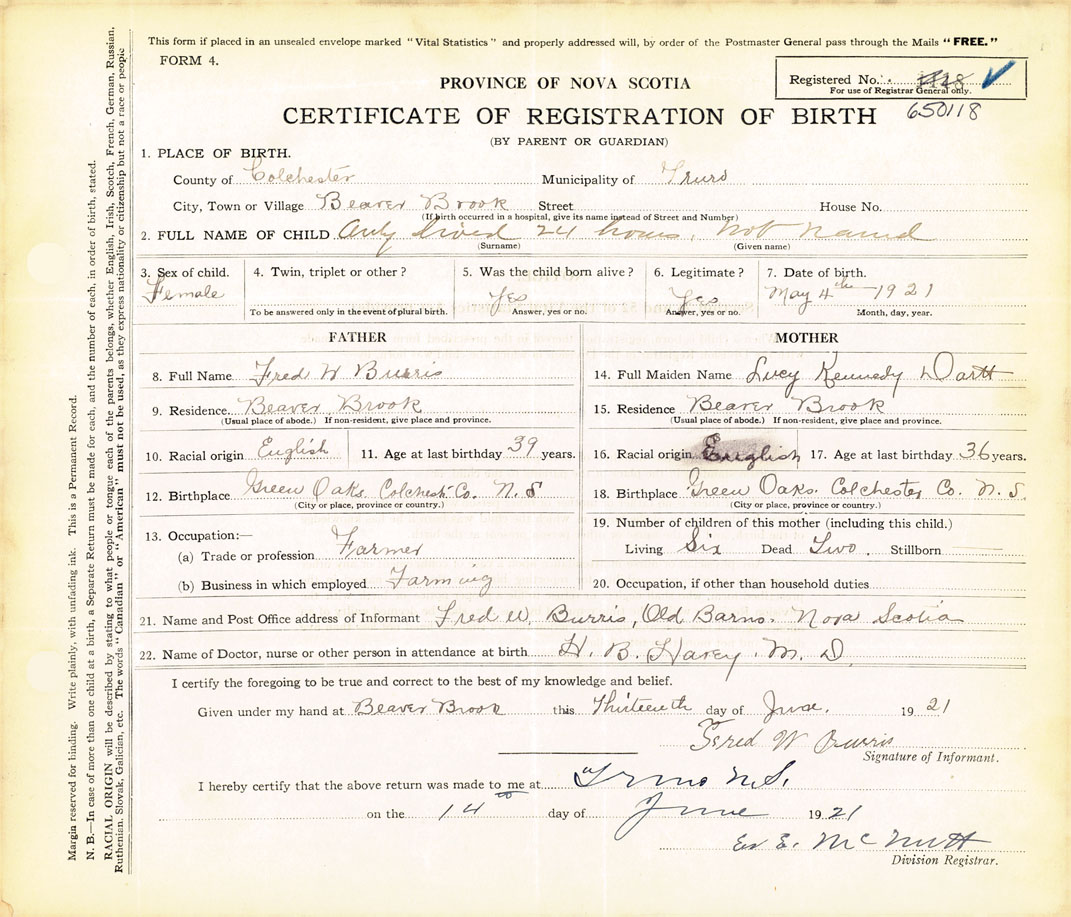 This form if placed in an unsealed envelope marked "Vital Statistics" and properly addressed will, by order of the Postmaster General pass through the Mails "FREE."
FORM 4.
Registered No.
For use of Registrar General only.
650118
PROVINCE OF NOVA SCOTIA
CERTIFICATE OF REGISTRATION OF BIRTH
(BY PARENT OR GUARDIAN)
1. PLACE OF BIRTH.
County of Colchester Municipality of Truro
City, Town or Village Beaver Brook Street House No.
(If birth occurred in a hospital, give its name instead of Street and Number)
2. FULL NAME OF CHILD Only lived 24 hours, not named
(Surname) (Given name)
3. Sex of child. 4. Twin, triplet or other? 5. Was the child born alive? 6. Legitimate? 7. Date of birth.
Female Yes Yes May 4th 1921
To be answered only in the event of plural birth. Answer, yes or no. Answer, yes or no. Month, day, year.
FATHER
8. Full Name Fred W Burris
9. Residence Beaver Brook
(Usual place of abode.) If non-resident, give place and province.
10. Racial origin English 11. Age at last birthday 39 years.
12. Birthplace Green Oaks. Colchest. Co. N. S
(City or place, province or country.)
13. Occupation:—
(a) Trade or profession Farmer
(b) Business in which employed Farming
MOTHER
14. Full Maiden Name Lucy Kennedy Dartt
15. Residence Beaver Brook
(Usual place of abode.) If non-resident, give place and province.
16. Racial origin English 17. Age at last birthday 36 years.
18. Birthplace Green Oaks. Colchester Co. N. S.
(City or place, province or country.)
19. Number of children of this mother (including this child.)
Living Six Dead Two. Stillborn
20. Occupation, if other than household duties
21. Name and Post Office address of Informant Fred W. Burris, Old Barns. Nova Scotia
22. Name of Doctor, nurse or other person in attendance at birth H. B. Havey. M. D.
I certify the foregoing to be true and correct to the best of my knowledge and belief.
Given under my hand at Beaver Brook this Thirteenth day of June. 1921
Fred W Burris
Signature of Informant.
I hereby certify that the above return was made to me at Truro N.S.
on the 14 day of June 1921
E. McNutt
Division Registrar.
Margin reserved for binding. Write plainly, with unfading ink. This is a Permanent Record.
N. B.—In case of more than one child at a birth, a Separate Return must be made for each, and the number of each, in order of birth, stated.
RACIAL ORIGIN will be described by stating to what people or tongue each of the parents belongs, whether English, Irish, Scotch, French, German, Russian,
Ruthenian, Slovak, Galician, etc. The words "Canadian" or "American" must not be used, as they express nationality or citizenship but not a race or people